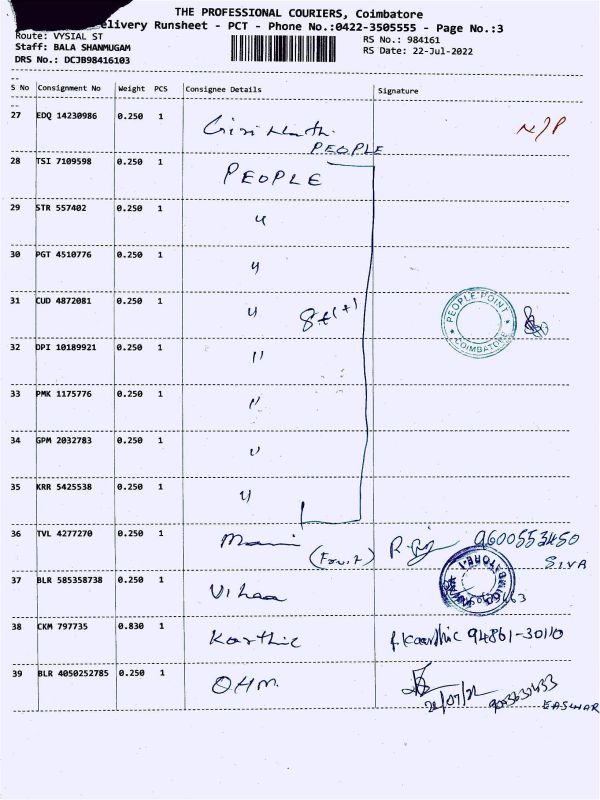 THE PROFESSIONAL COURIERS, Coimbatore
elivery Runsheet - PCT - Phone No.:0422-3505555 - Page No.:3
Route: VYSIAL ST
RS No.: 984161
Staff: BALA SHANMUGAM
RS Date: 22-Jul-2022
DRS No.: DCJB98416103
S No Consignment No Weight PCS Consignee Details Signature
27 EDQ 14230986 0.250 1 N/P
PEOPLE
28 TSI 7109598 0.250 1 PEOPLE
29 STR 557402 0.250 1 "
30 PGT 4510776 0.250 1 "
31 CUD 4872081 0.250 1 " PEOPLE POINT COIMBATORE
32 DPI 10189921 0.250 1 "
33 PMK 1175776 0.250 1 "
34 GPM 2032783 0.250 1 "
35 KRR 5425538 0.250 1 "
36 TVL 4277270 0.250 1 Mani 9600553450
SIVA
37 BLR 585358738 0.250 1 Vihaa
38 CKM 797735 0.830 1 Karthic f. Kaarthic 94861-30110
39 BLR 4050252785 0.250 1 OHM
22/07/22
EASWAR